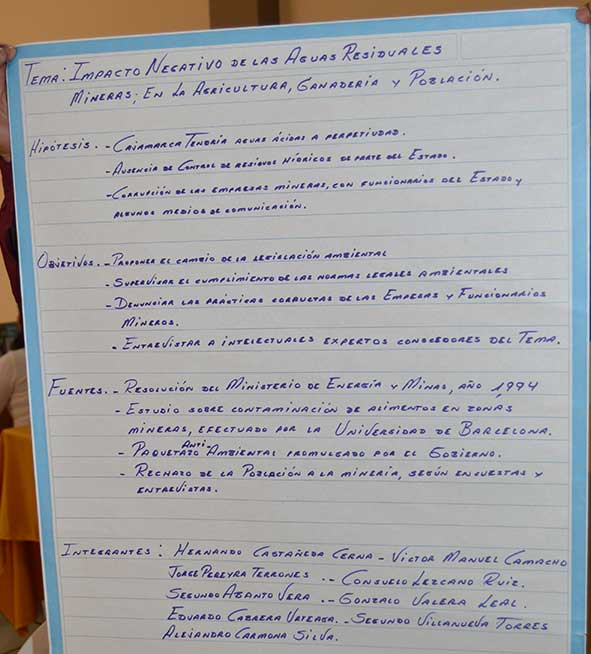 TEMA: IMPACTO NEGATIVO DE LAS AGUAS RESIDUALES
MINERAS; EN LA AGRICULTURA, GANADERÍA Y POBLACIÓN.
HIPÓTESIS.- CAJAMARCA TENDRÍA AGUAS ÁCIDAS A PERPETUIDAD.
- AUSENCIA DE CONTROL DE RESIDUOS HÍDRICOS DE PARTE DEL ESTADO.
- CORRUPCIÓN DE LAS EMPRESAS MINERAS, CON FUNCIONARIOS DEL ESTADO Y
ALGUNOS MEDIOS DE COMUNICACIÓN.
OBJETIVOS.- PROPONER EL CAMBIO DE LA LEGISLACIÓN AMBIENTAL
- SUPERVISAR EL CUMPLIMIENTO DE LAS NORMAS LEGALES AMBIENTALES
- DENUNCIAR LAS PRÁCTICAS CORRUCTAS DE LAS EMPRESAS Y FUNCIONARIOS
MINEROS.
- ENTREVISTAR A INTELECTUALES EXPERTOS CONOCEDORES DEL TEMA.
FUENTES.- RESOLUCIÓN DEL MINISTERIO DE ENERGÍA Y MINAS, AÑO 1,994
- ESTUDIO SOBRE CONTAMINACIÓN DE ALIMENTOS EN ZONAS
MINERAS, EFECTUADO POR LA UNIVERSIDAD DE BARCELONA.
- PAQUETAZO ANTI AMBIENTAL PROMULGADO POR EL GOBIERNO.
- RECHAZO DE LA POBLACIÓN A LA MINERÍA, SEGÚN ENCUESTAS Y
ENTREVISTAS.
INTEGRANTES: HERNANDO CASTAÑEDA CERNA - VICTOR MANUEL CAMACHO
JORGE PEREYRA TERRONES .- CONSUELO LEZCANO RUIZ.
SEGUNDO ABANTO VERA .- GONZALO VALERA LEAL.
EDUARDO CABRERA URTEAGA.- SEGUNDO VILLANUEVA TORRES
ALEJANDRO CARMONA SILVA.